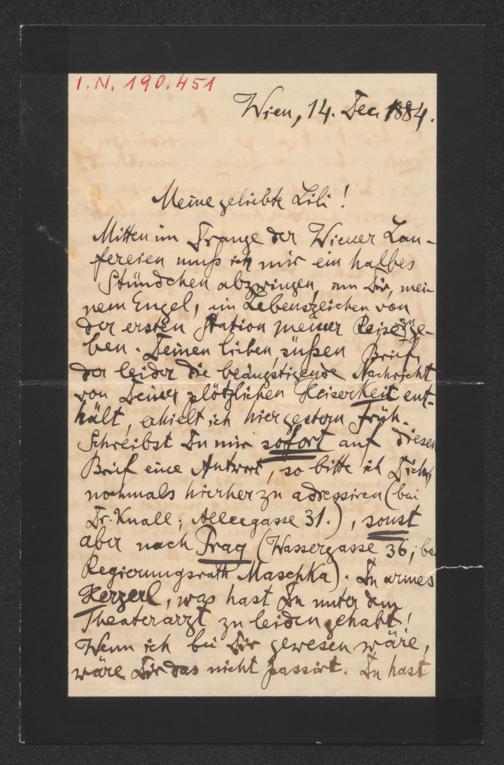 I.N. 190.451
Wien, 14. Dec. 1884.
Meine geliebte Lili!
Mitten im Drange der Wiener Lau-
fereien muß ich mir ein halbes
Stündchen abzwingen, um Dir, mei-
nem Engel, ein Lebenszeichen von
der ersten Station meiner Reise zu ge-
ben. Deinen lieben, süßen Brief,
der leider die beängstigende Nachricht
von Deiner plötzlichen Heiserkeit ent-
hält, erhielt ich hier gestern Früh.
Schreibst Du mir sofort auf diesen
Brief eine Antwort, so bitte ich Dich,
nochmals hierher zu adressiren (bei
Dr. Knall; Alleegasse 31.), sonst
aber nach Prag (Wassergasse 36, bei
Regierungsrath Maschka). Du armes
Herzerl, was hast Du unter dem
Theaterarzt zu leiden gehabt!
Wenn ich bei Dir gewesen wäre,
wäre Dir das nicht passirt. Du hast